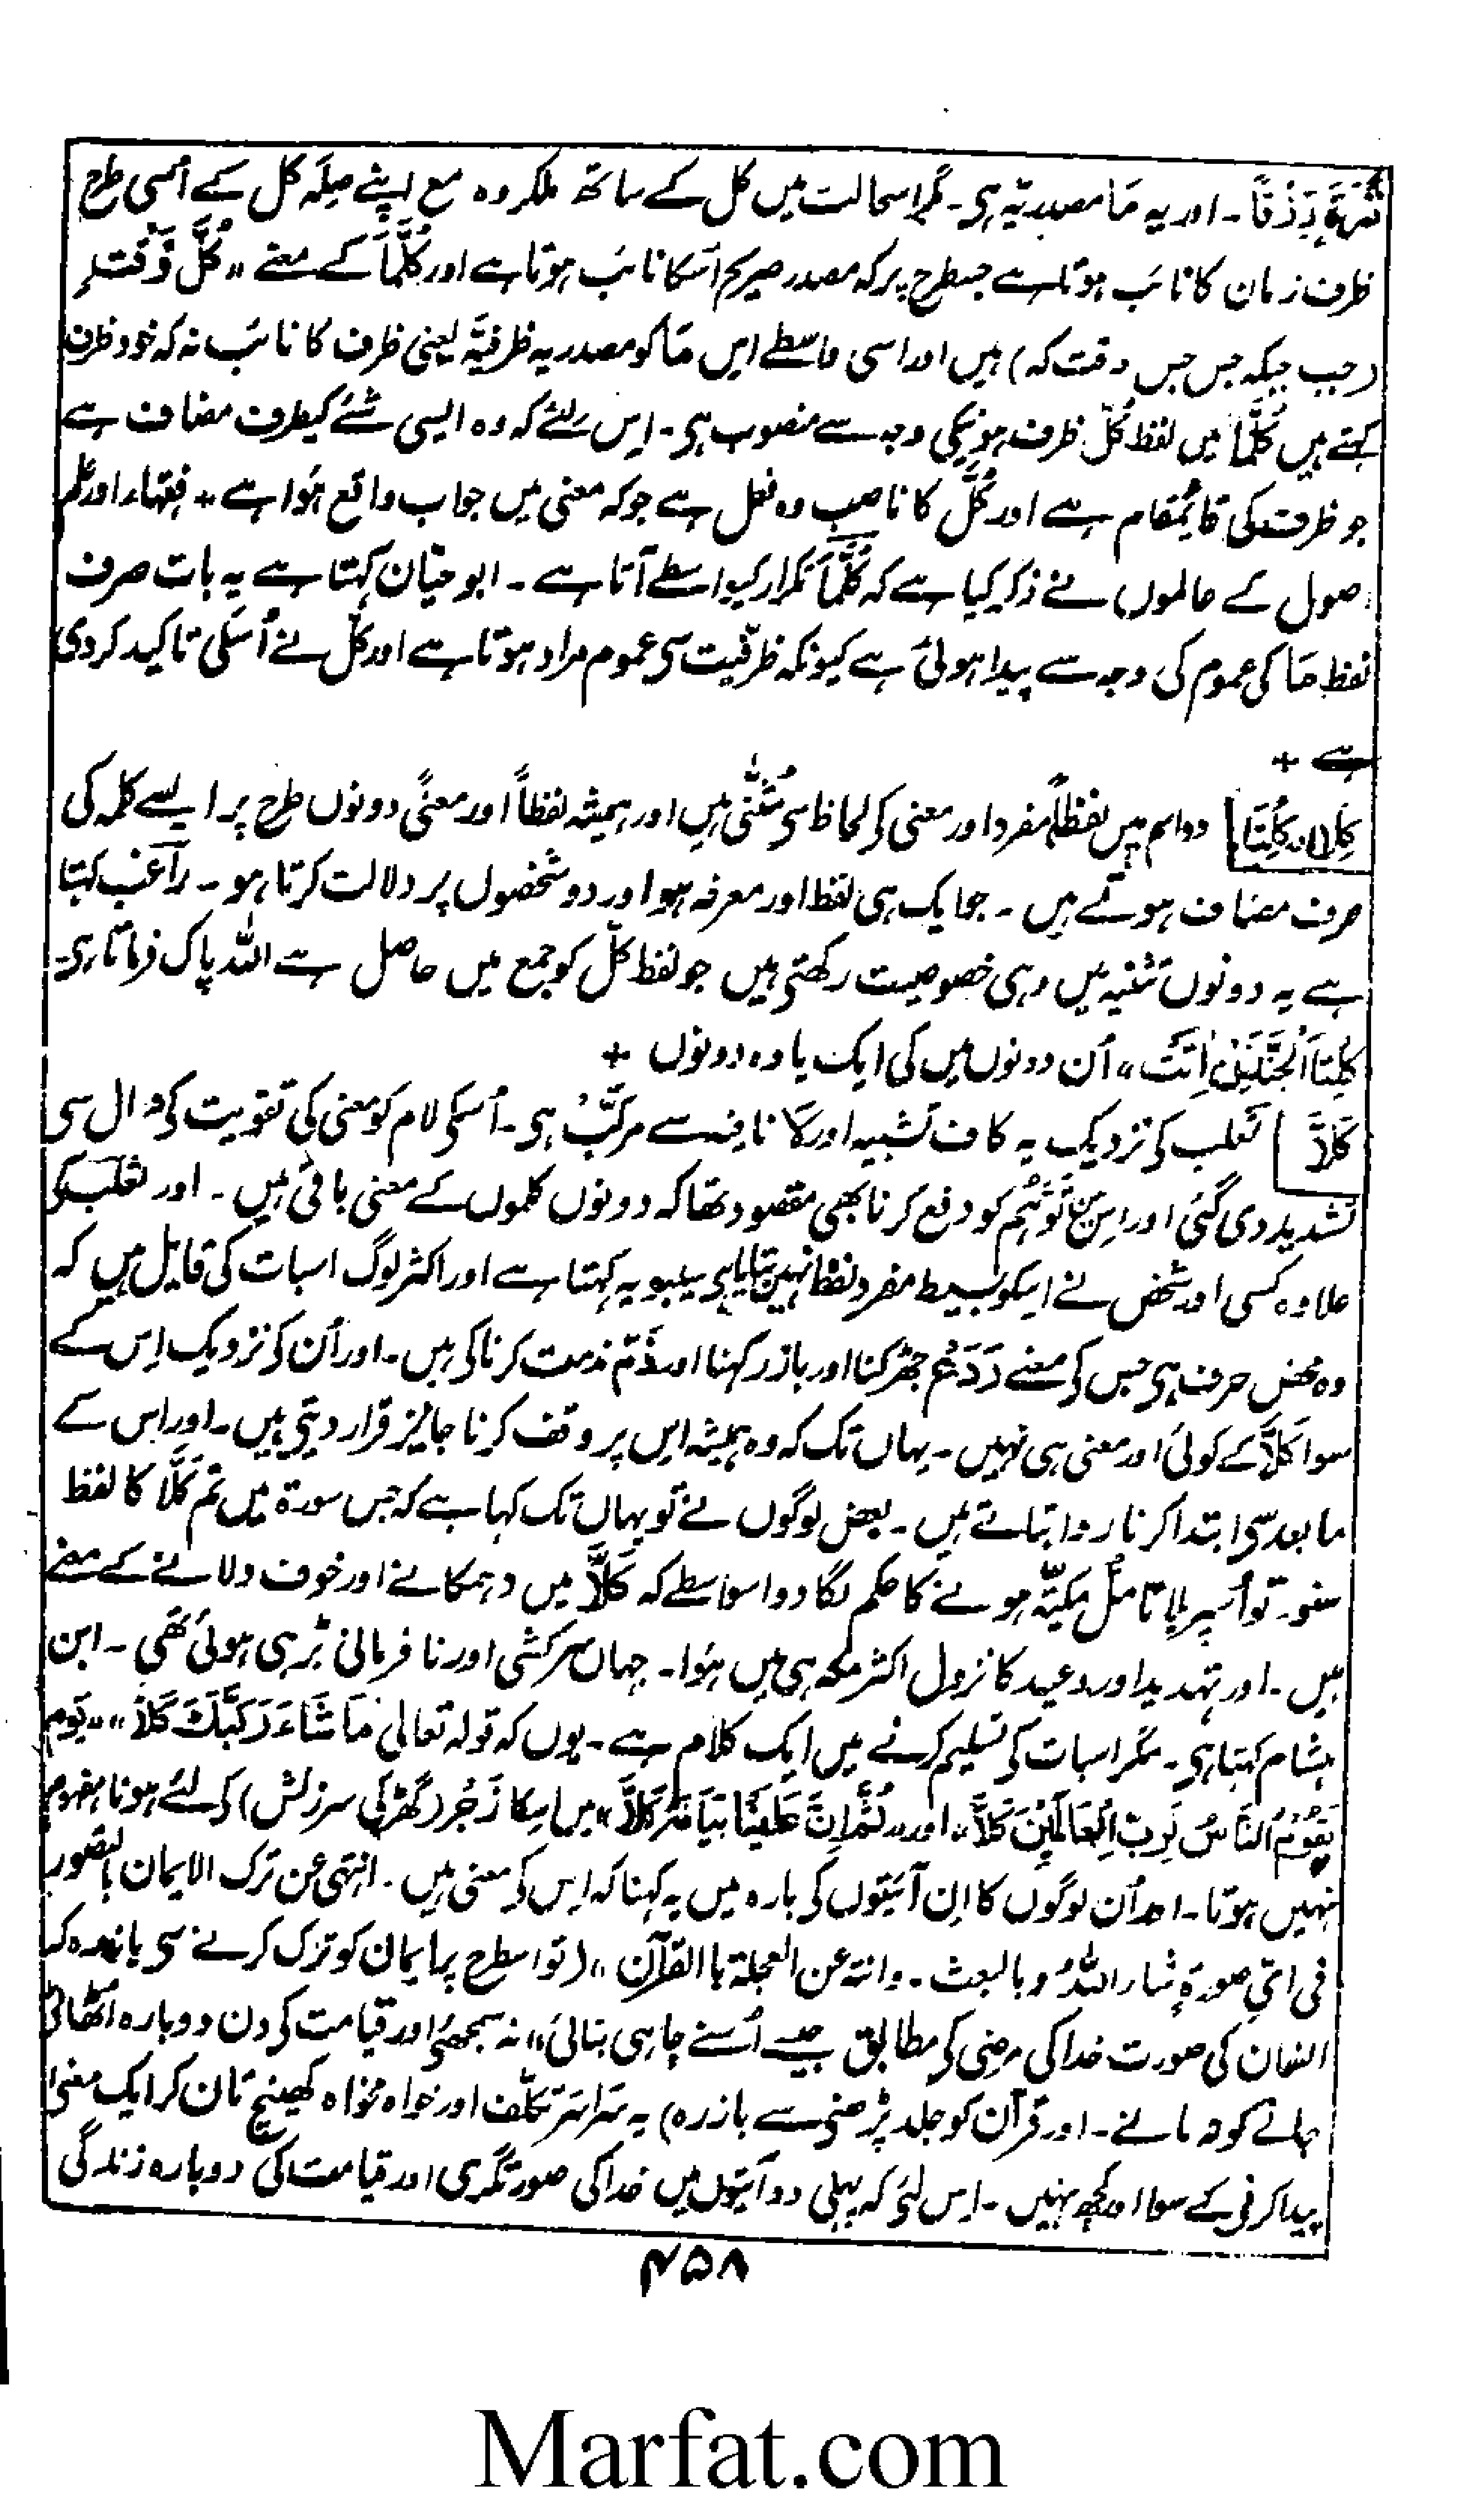 ثَمَرَةٍ رِّزْقًا۔ اور یہ مَا مصدریّہ ہی۔ مگر اسحالت میں کل کے ساتھ ملکر وہ مع اپنے صِلَہ کل کے اُسی طرح
ظرف زمان کا نائب ہوتا ہے جسطرح پر کہ مصدر صریح اُسکا نائب ہوتا ہے اور کُلَّمَا کے معنے ،، کُلَّ وَقْتٍ
(جب جبکہ جس جس وقت کہ) ہیں اور اسی واسطے اِس مَا کو مصدریہ ظرفیّہ یعنی ظرف کا نائب نہ کہ خود ظرف
کہتے ہیں کُلَّمَا میں لفظ کُلّ ظرف ہونیکی وجہ سے منصوب ہی۔ اِس لئے کہ وہ ایسی شئے کیطرف مضاف ہے
جو ظرف کی قائمقام ہے اور کُلَّ کا ناصب وہ فعل ہے جو کہ معنی میں جواب واقع ہُوا ہے + فقہاء اور علم
اصول کے عالموں نے ذکر کیا ہے کہ کُلَّمَا تکرار کیواسطے آتا ہے ۔ ابو حیّان کہتا ہے یہ بات صرف
لفظ مَا کی عموم کی وجہ سے پیدا ہوئی ہے کیونکہ ظرفیت سی عموم مراد ہوتا ہے اور کُلّ نے اُسکی تاکید کردی
ہے +
کِلا اور کِلْتَا دو اسم ہیں لفظاً مفرد اور معنی کی لحاظ سی مُثَنّٰی ہیں اور ہمیشہ لفظاً اور معنًی دونوں طرح پر ایسے کلمہ کی
طرف مضاف ہوتے ہیں ۔ جو ایک ہی لفظ اور معرفہ ہو اور دو شخصوں پر دلالت کرتا ہو ۔ راغب کہتا
ہے یہ دونوں تثنیہ میں وہی خصوصیت رکھتی ہیں جو لفظ کُلّ کو جمع میں حاصل ہے اللہ پاک فرماتا ہی۔
کِلْتَا الْجَنَّتَیْنِ اٰتَتْ ،، اُن دونوں میں کی ایک یا وہ دونوں +
کَلَّا ثعلب کی نزدیک یہ کاف تشبیہ اور لَا نافیہ سے مرکّب ہی۔ اُسکی لام کو معنی کی تقویت کی خیال سی
تشدید دی گئی اور اِس تَوَہُّم کو دفع کرنا بھی مقصود تھا کہ دونوں کلموں کے معنی باقی ہیں ۔ اور ثعلب کی
علاوہ کسی اور شخص نے اسکو بسیط مفرد لفظ نہیں بتایا ہی سیبویہ کہتا ہے اور اکثر لوگ اسبات کی قایل ہیں کہ
وہ محض حرف ہی جس کی معنے رَدَع جھڑکنا اور باز رکھنا اور ذَمّ مذمت کرنا کی ہیں۔ اور اُن کی نزدیک اِس کے
سوا کَلَّا کے کوئی اور معنی ہی نہیں ۔ یہاں تک کہ وہ ہمیشہ اِس پر وقف کرنا جایز قرار دیتی ہیں۔ اور اس کے
مابعد سی ابتدا کرنا روا بتاتے ہیں ۔ بعض لوگوں نے تو یہاں تک کہا ہے کہ جس سورۃ میں تم کَلَّا کا لفظ
سنو۔ تو اُسپر بلا تامل مکیّہ ہونے کا حکم لگا دو اسواسطے کہ کَلَّا میں دہمکانے اور خوف دلانے کے معنے
ہیں ۔ اور تہدید اور وعید کا نزول اکثر مکہ ہی میں ہُوا ۔ جہاں سرکشی اور نافرمانی بڑہی ہوئی تھی ۔ ابن
ہشام کہتا ہی۔ مگر اسبات کی تسلیم کرنے میں ایک کلام ہے ۔ یوں کہ قولہ تعالیٰ مَا شَاءَ رَكَّبَكَ كَلَّا ،، ،، یَوْمَ
یَقُوْمُ النَّاسُ لِرَبِّ الْعَالَمِیْنَ كَلَّا ،، اور ،، ثُمَّ اِنَّ عَلَیْنَا بَیَانَہٗ کَلَّا ،، میں اسکا زَجْر (گھڑکی سرزنش) کی لئے ہونا مفہوم
نہیں ہوتا ۔ اور اُن لوگوں کا اِن آئیتوں کی بارہ میں یہ کہنا کہ اِس کی معنی ہیں ۔ انتہی عن ترک الایمان بالتصویر
فی ایّ صورۃٍ شاء اللہُ و بالبعث ۔ وانتہ عن العجلۃ بالقرآن ،، (تو اسطرح پر ایمان کو ترک کرنے سی باز رہ کہ
انسان کی صورت خدا کی مرضی کی مطابق جیسے اُسنے چاہی بنائی ،، نہ سمجھے اور قیامت کی دن دوبارہ اُٹھائی
جانے کو نہ مانے ۔ اور قرآن کو جلد پڑھنے سے باز رہ) یہ سراسر تکلّف اور خواہ مخواہ کھینچ تان کر ایک معنی
پیدا کرنی کے سوا اور کچھ نہیں ۔ اِس لئے کہ پہلی دو آئیتوں میں خدا کی صورتگری اور قیامت کی دوبارہ زندگی
۴۵۸
Marfat.com